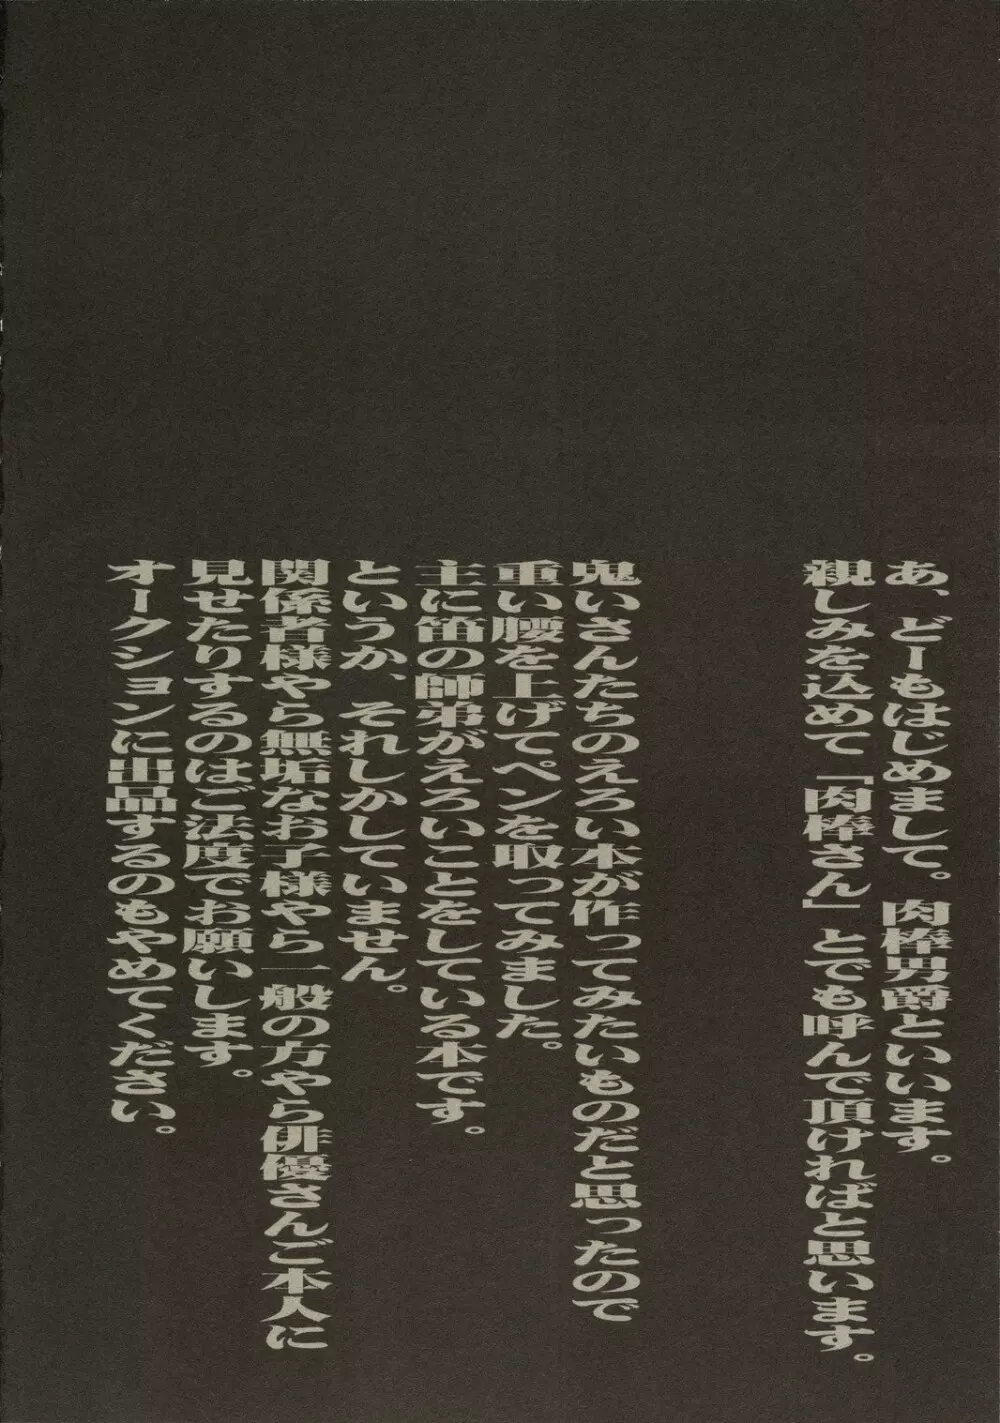 あ、どーもはじめまして。肉棒男爵といいます。
親しみを込めて「肉棒さん」とでも呼んで頂ければと思います。
鬼いさんたちのえろい本が作ってみたいものだと思ったので
重い腰を上げてペンを取ってみました。
主に笛の師弟がえろいことをしている本です。
というか、それしかしていません。
関係者様やら無垢なお子様やら一般の方やら俳優さんご本人に
見せたりするのはご法度でお願いします。
オークションに出品するのもやめてください。